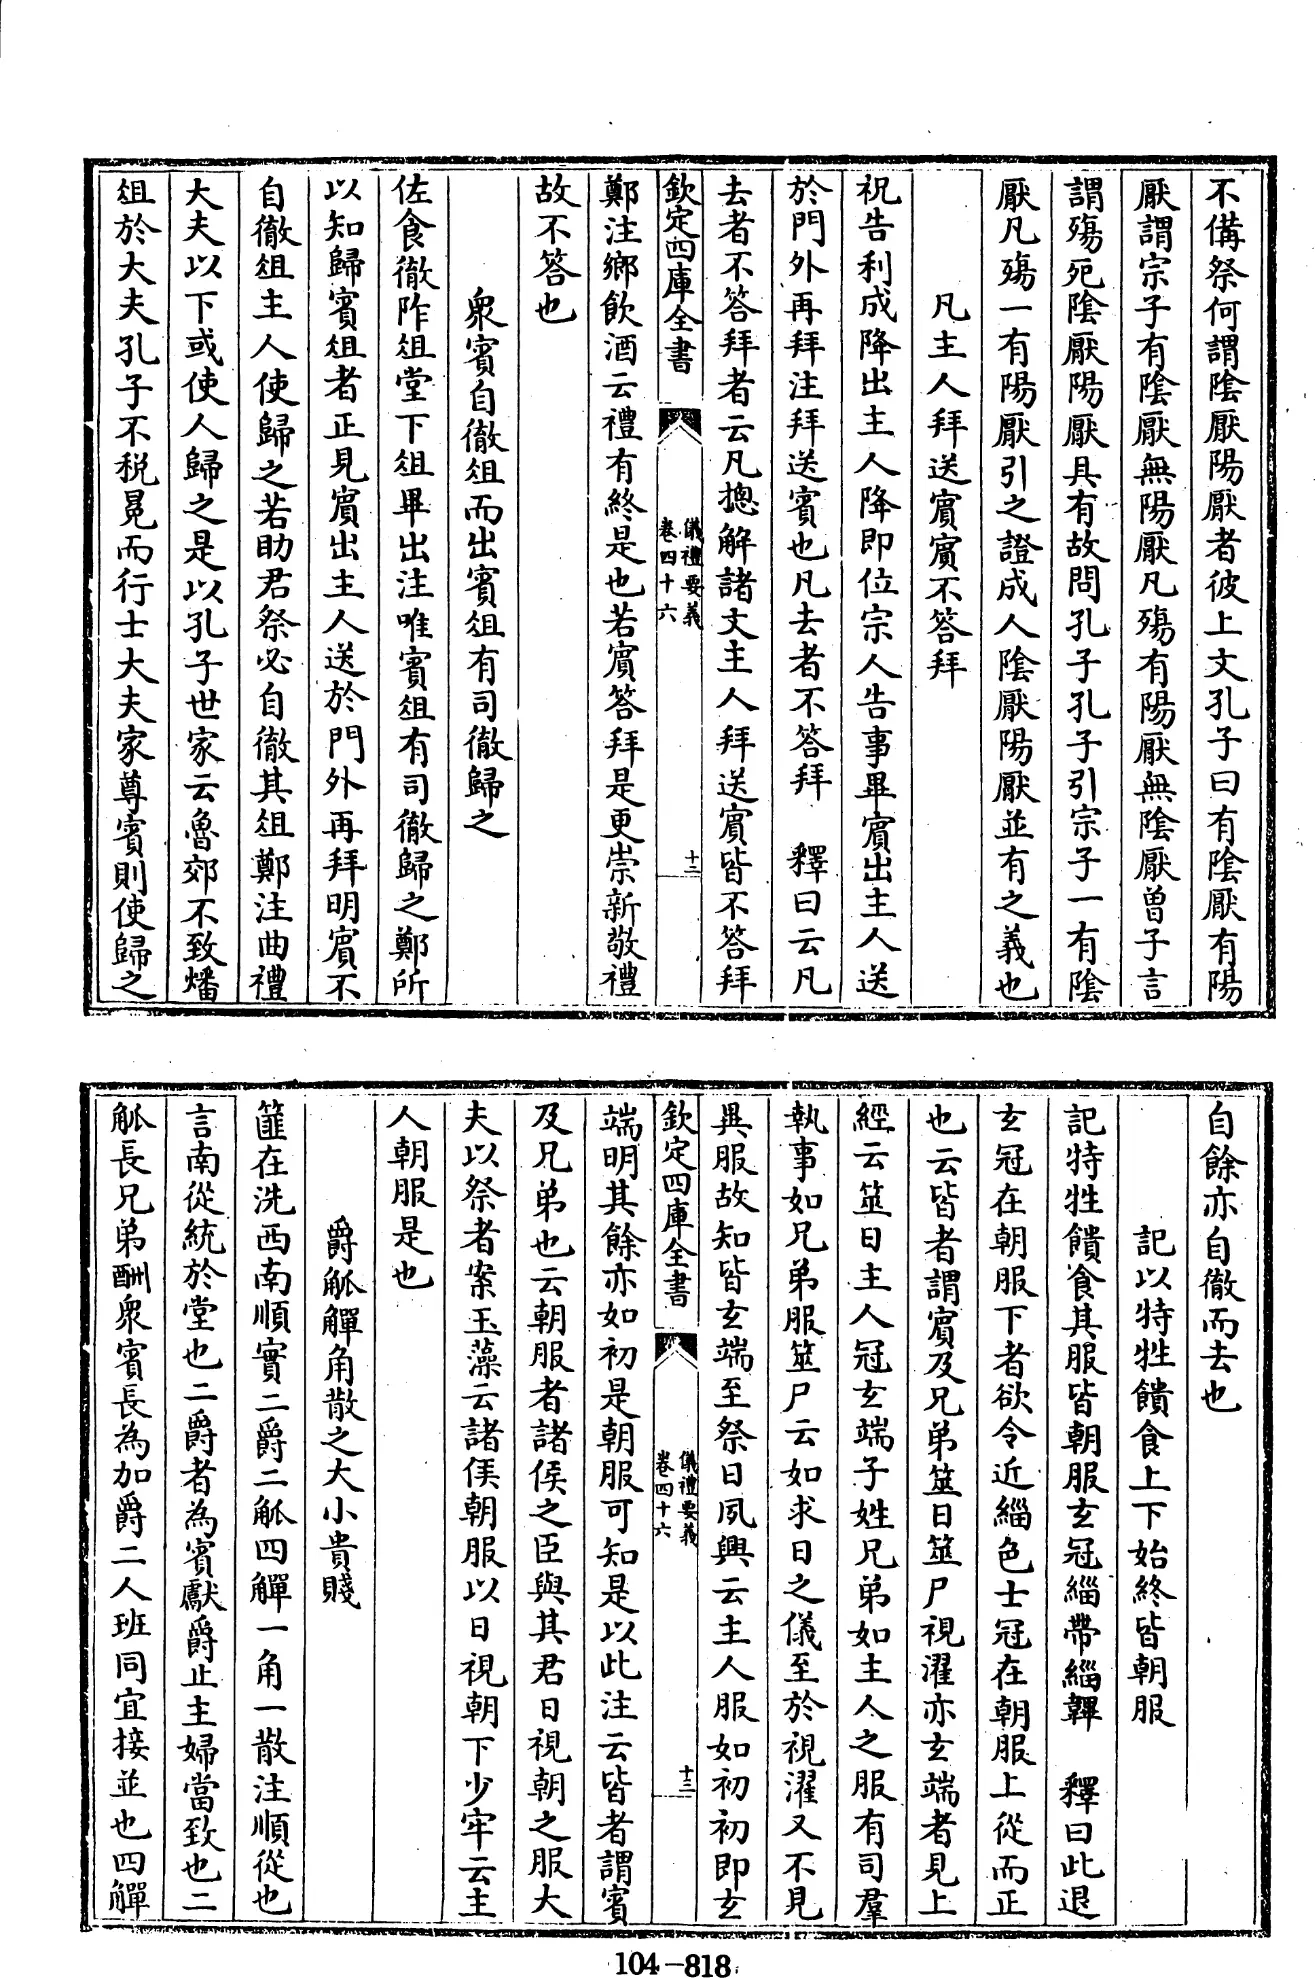 不備祭何謂陰厭陽厭者彼上文孔子曰有陰厭有陽
厭謂宗子有陰厭無陽厭凡殤有陽厭無陰厭曾子言
謂殤死陰厭陽厭具有故問孔子孔子引宗子一有陰
厭凡殤一有陽厭引之證成人陰厭陽厭並有之義也
凡主人拜送賓賓不答拜
祝告利成降出主人降即位宗人告事畢賓出主人送
於門外再拜注拜送賓也凡去者不答拜 釋曰云凡
去者不答拜者云凡摠解諸文主人拜送賓皆不答拜
欽定四庫全書
儀禮要義
卷四十六
十二
鄭注鄉飲酒云禮有終是也若賓答拜是更崇新敬禮
故不答也
衆賓自徹俎而出賓俎有司徹歸之
佐食徹阼俎堂下俎畢出注唯賓俎有司徹歸之鄭所
以知歸賓俎者正見賓出主人送於門外再拜明賓不
自徹俎主人使歸之若助君祭必自徹其俎鄭注曲禮
大夫以下或使人歸之是以孔子世家云魯郊不致燔
俎於大夫孔子不税冕而行士大夫家尊賓則使歸之
自餘亦自徹而去也
記以特牲饋食上下始終皆朝服
記特牲饋食其服皆朝服玄冠緇帶緇韠 釋曰此退
玄冠在朝服下者欲令近緇色士冠在朝服上從而正
也云皆者謂賓及兄弟筮日筮尸視濯亦玄端者見上
經云筮日主人冠玄端子姓兄弟如主人之服有司羣
執事如兄弟服筮尸云如求日之儀至於視濯又不見
異服故知皆玄端至祭日夙興云主人服如初初即玄
欽定四庫全書
儀禮要義
卷四十六
十三
端明其餘亦如初是朝服可知是以此注云皆者謂賓
及兄弟也云朝服者諸侯之臣與其君日視朝之服大
夫以祭者案玉藻云諸侯朝服以日視朝下少牢云主
人朝服是也
爵觚觶角散之大小貴賤
篚在洗西南順實二爵二觚四觶一角一散注順從也
言南從統於堂也二爵者為賓獻爵止主婦當致也二
觚長兄弟酬衆賓長為加爵二人班同宜接並也四觶
104-818